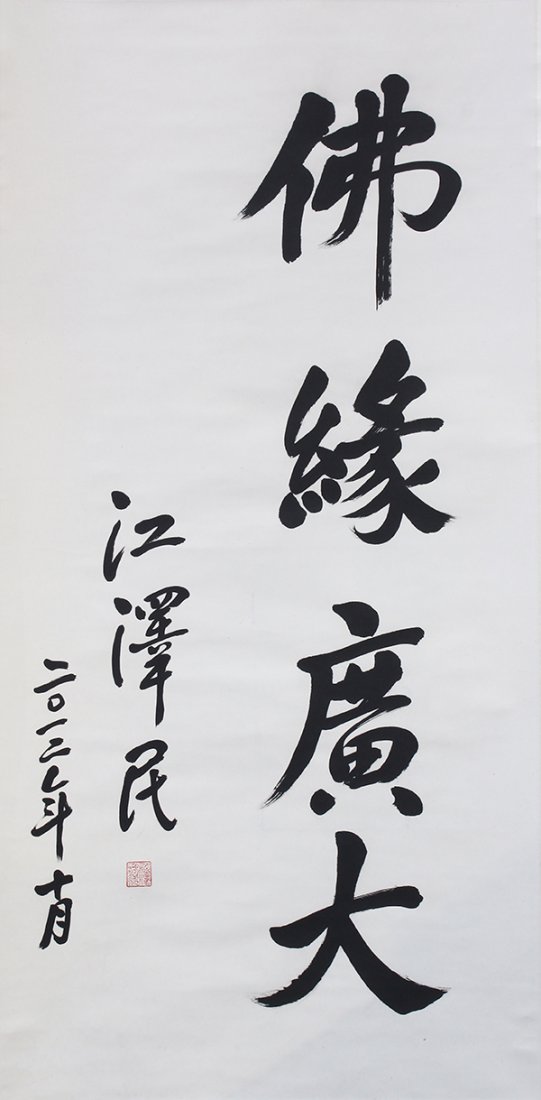 佛緣廣大
江澤民
二〇一二年十月